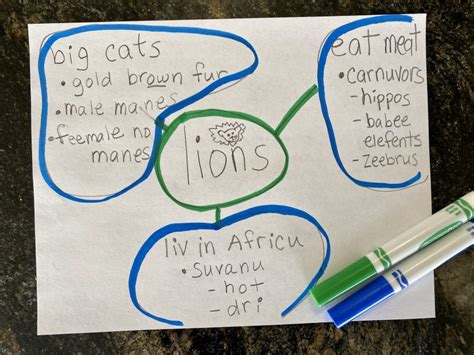 big cats
• gold brown fur
• male manes
• feemale no
manes
lions
eat meat
• carnuvors
- hippos
- babee
elefents
- zeebrus
liv in Africu
• suvanu
- hot
- dri